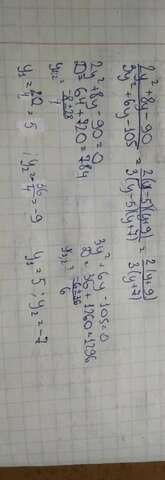 2y²+8y-90 / 3y²+6y-105 = 2(y-5)(y+9) / 3(y-5)(y+7) = 2(y+9) / 3(y+7)
2y²+8y-90=0
D=64+720=784
y₁,₂ = -8±28 / 4
y₁ = 20/4 = 5 ; y₂ = -36/4 = -9
3y²+6y-105=0
D=36+1260=1296
y₁,₂ = -6±36 / 6
y₁=5 ; y₂=-7